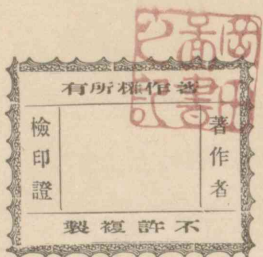 著作權所有
著作者
檢印證
不許複製